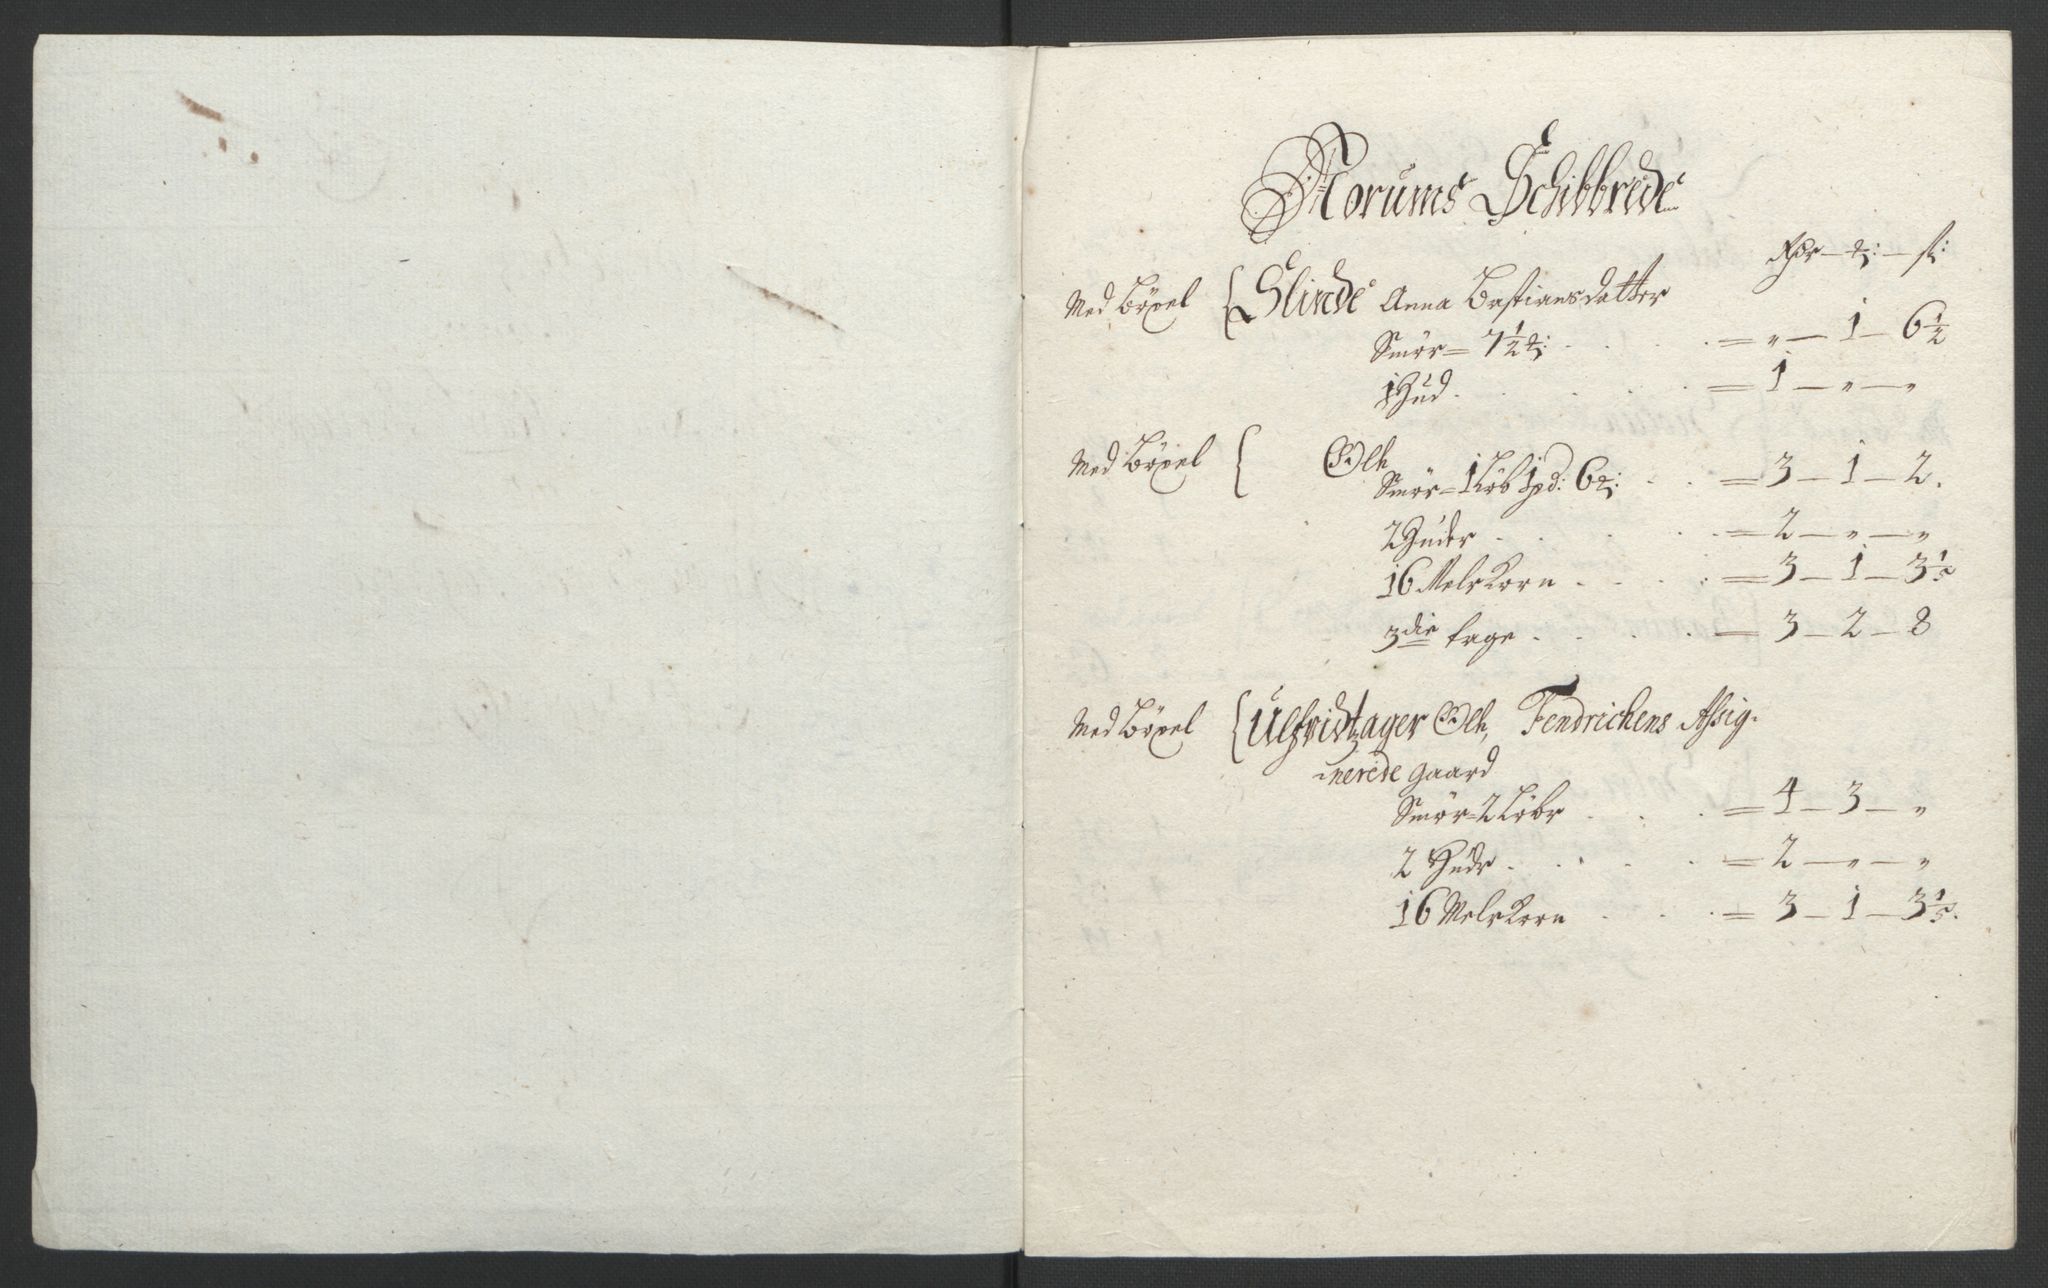 Norums Schibbrede
Rdr — ₰: — ß:
Med Böxel { Slinde Anna Bastiansdatter
Smör = 7½ ₰: . . . . = „ — 1 — 6½
1 Hud . . . . = 1 — „ — „
Med Böxel { Ole
Smör = 1 Löb 1 pd: 6 ₰: . . = 3 — 1 — 2.
2 Huder . . . . = 2 — „ — „
16 Meler Korn . . . . = 3 — 1 — 3⅕
3die tage . . . . = 3 — 2 — 8
Med Böxel { Ole, Fendrichens Assig-
nerede gaard
Smör = 2 Löber . . . = 4 — 3 — „
2 Huder . . . . = 2 — „ — „
16 Meler Korn . . . . = 3 — 1 — 3⅕.